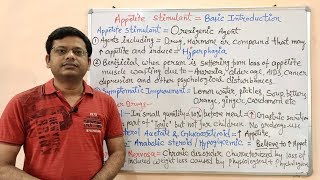 Appetite Stimulant = Basic Introduction
Appetite Stimulant = Orexigenic Agent
1) Agents including = Drug, Hormone or compound that may
↑ appetite and induce = Hyperphagia
2) Beneficial when person is suffering from loss of appetite
muscle wasting due to - Anorexia, older age, AIDS, cancer
depression and other psychological disturbances.
Symptomatic Improvement = Lemon water, pickles, Soup, bitters
Orange, ginger, Cardamom etc
Drugs -
In small quantity = before meal = ↑ Gastric secretion
part of "Tonic" but not for children. No prolonged use
Acetate & Glucocorticoid = ↑ Appetite
Anabolic steroid / Hypoglycemic = Believe to ↑ Appetite
Nervosa = Chronic disorder characterized by loss of
induced weight loss caused by Physiological &